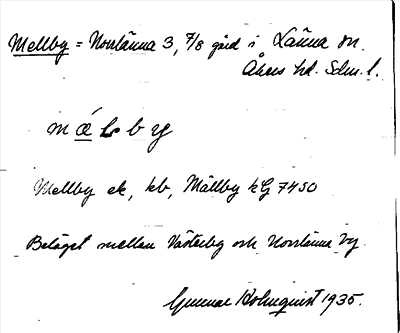 Mellby = Norrlänna 3, 7/8 gård i Länna sn.
Åkers hd. Sdm. l.
m ǽ l b y
Mellby ek, hb, Mällby kG 7450
Beläget mellan Västerby och Norrlänna by.
Gunnar Holmquist 1935.